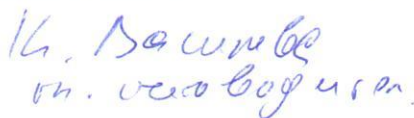 К. Василева
гл. счетоводител